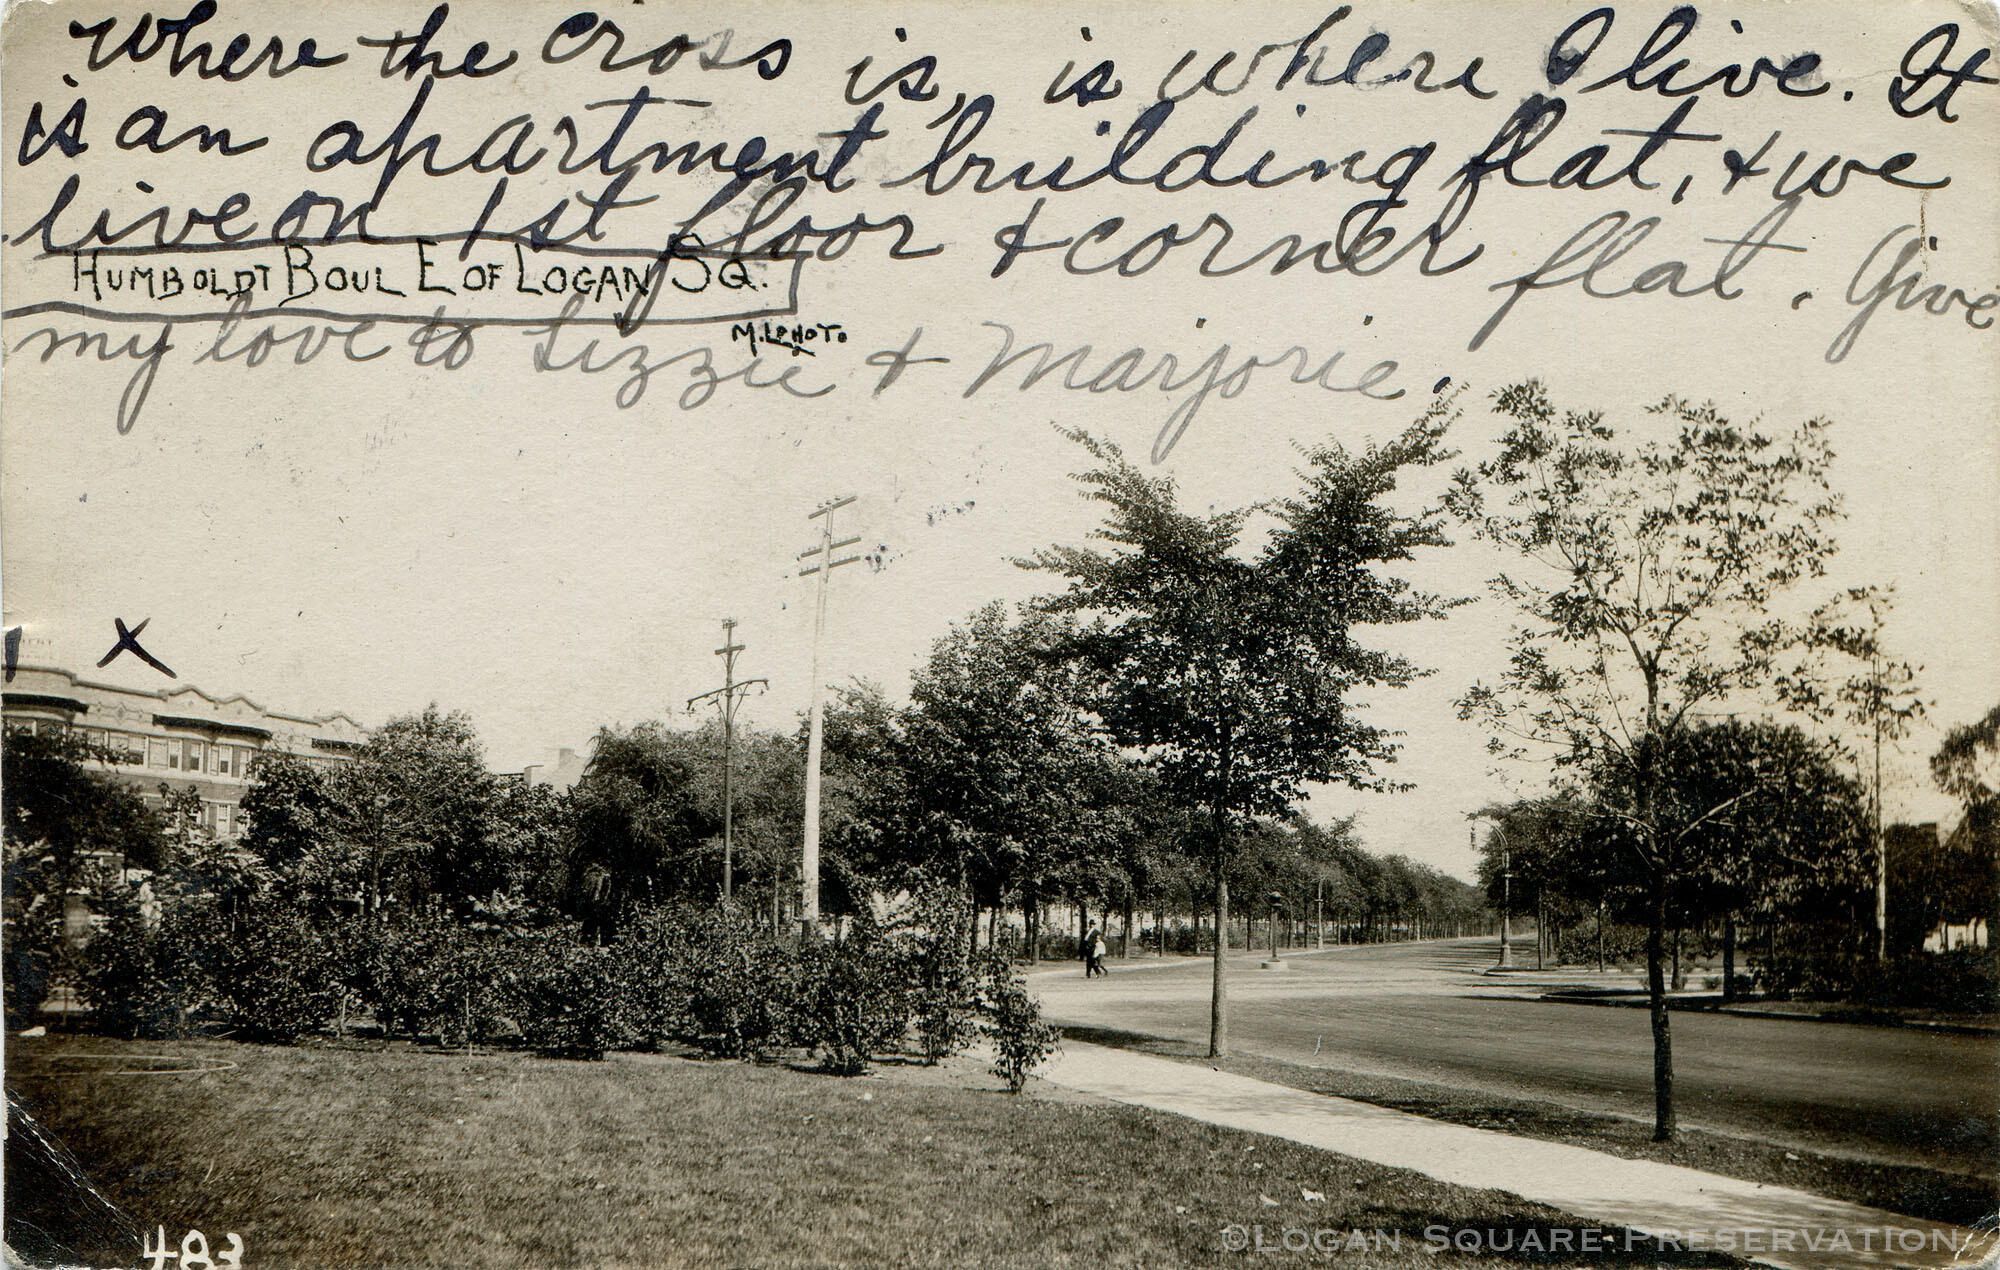 Where the cross is, is where I live. It
is an apartment building flat, & we
live on 1st floor & corner flat. Give
HUMBOLDT BOUL E OF LOGAN SQ.
my love to Lizzie & Marjorie.
M.L. PHOTO
X
483
©LOGAN SQUARE PRESERVATION